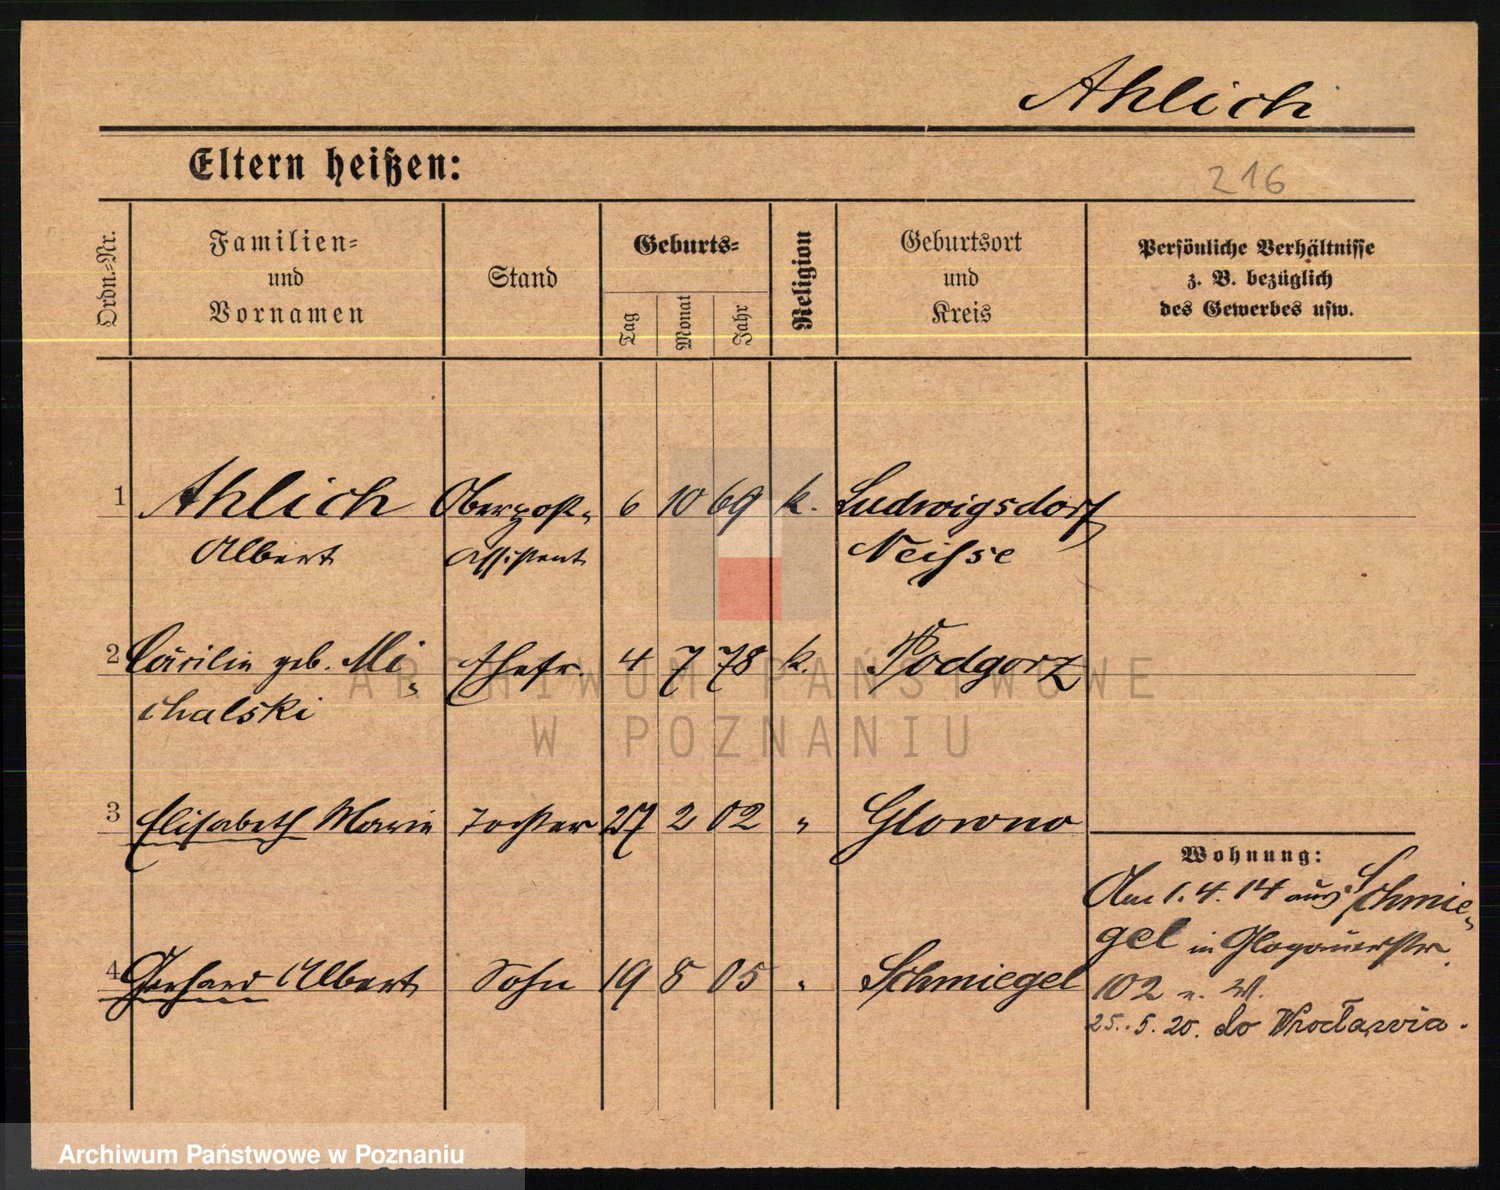 Ahlich
Eltern heißen:
216
Ordn.-Nr.
Familien-
und
Vornamen
Stand
Geburts-
Tag
Monat
Jahr
Religion
Geburtsort
und
Kreis
Persönliche Verhältnisse
z. B. bezüglich
des Gewerbes usw.
1 Ahlich Oberpost- 6 10 69 k. Ludwigsdorf
Albert Assistent Neisse
2 Cäcilie geb. Mi- Ehefr. 4 7 78 k. Podgorz
chalski
3 Elisabeth Marie Tochter 27 2 02 " Glowno
Wohnung:
Am 1.4.14 aus Schmie-
gel in Glogauerstr.
4 Gerhard Albert Sohn 19 8 05 " Schmiegel
102 n. W.
25.5.20. do Wrocławia.
ARCHIWUM PAŃSTWOWE
W POZNANIU
Archiwum Państwowe w Poznaniu